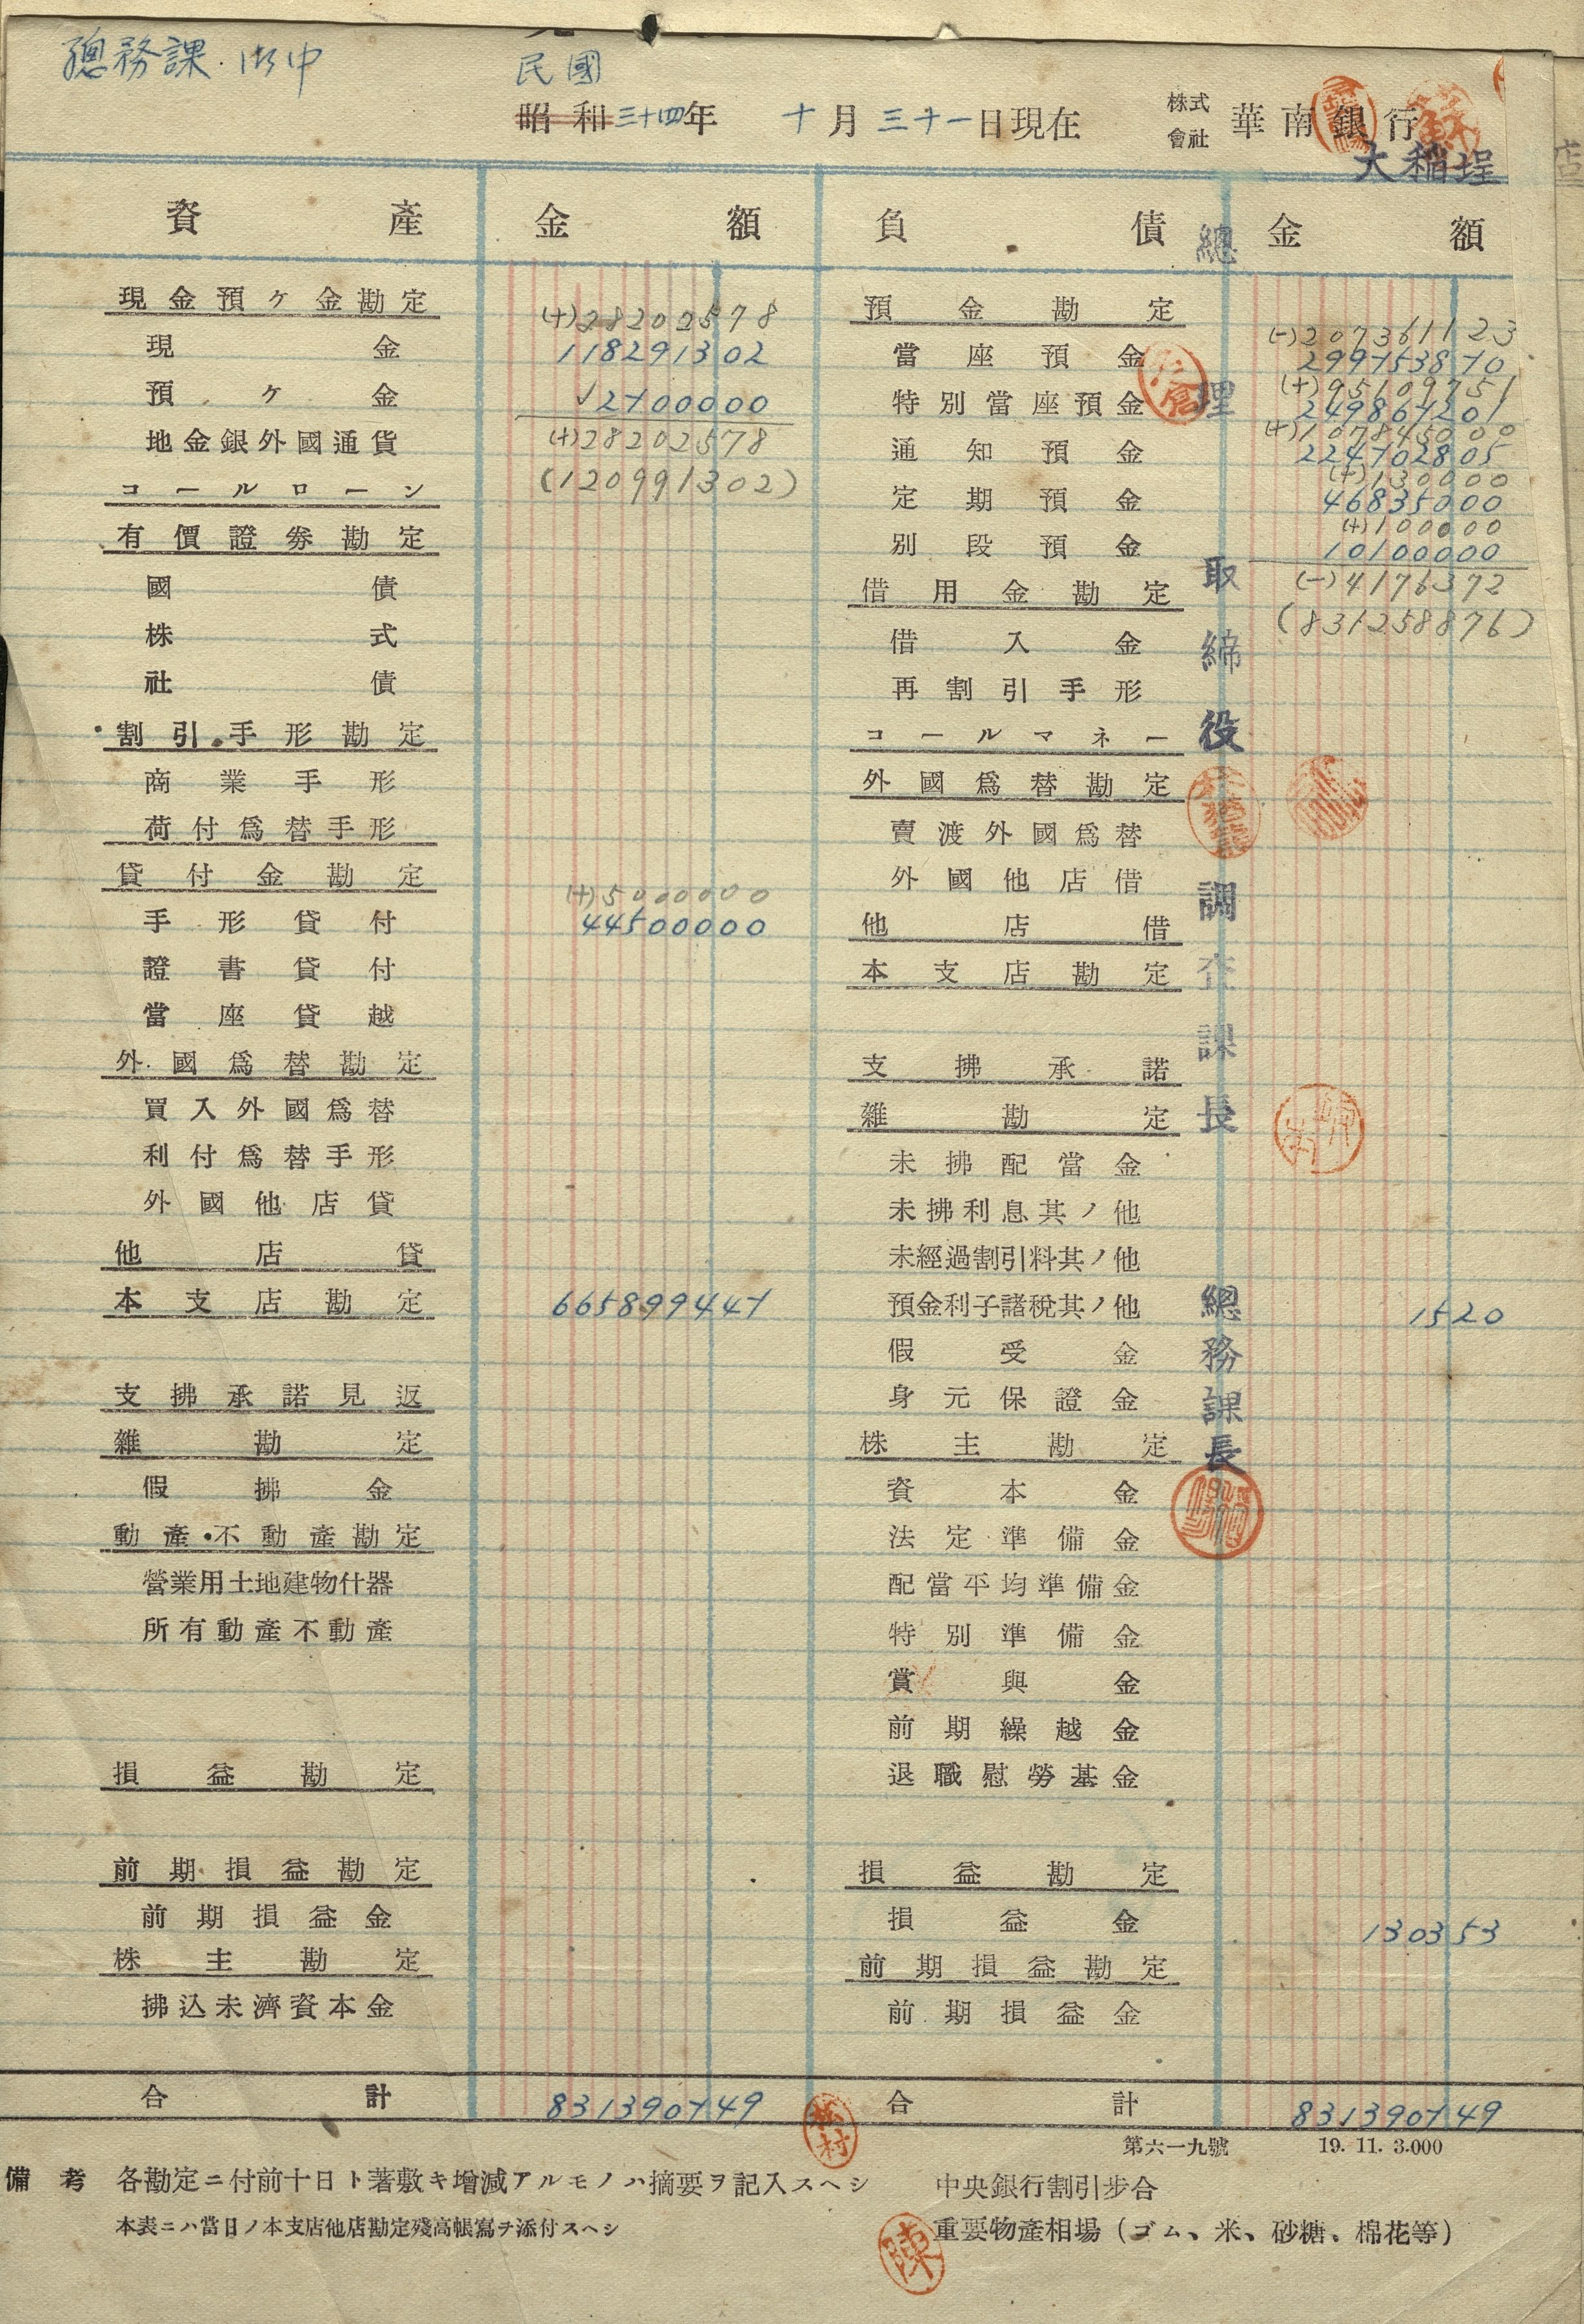 總務課 御中
民國
昭和三十四年 十月三十一日現在 株式會社 華南銀行
大稻埕
資產 金額 負債 金額
現金預ケ金勘定 (+)28202578
現金 118291302
預ケ金 √2700000
地金銀外國通貨 (+)28202578
コールローン (120991302)
有價證券勘定
國債
株式
社債
割引手形勘定
商業手形
荷付爲替手形
貸付金勘定
手形貸付 (+)5000000
44500000
證書貸付
當座貸越
外國爲替勘定
買入外國爲替
利付爲替手形
外國他店貸
他店貸
本支店勘定 665899447
支拂承諾見返
雜勘定
假拂金
動產・不動產勘定
營業用土地建物什器
所有動產不動產
損益勘定
前期損益勘定
前期損益金
株主勘定
拂込未濟資本金
合計 831390749
預金勘定
當座預金 (-)207361123
299753870
特別當座預金 (+)95109751
249867201
通知預金 (+)107845000
224702805
定期預金 (+)130000
46835000
別段預金 (+)100000
10100000
借用金勘定 (-)4176372
借入金 (831258876)
再割引手形
コールマネー
外國爲替勘定
賣渡外國爲替
外國他店借
他店借
本支店勘定
支拂承諾
雜勘定
未拂配當金
未拂利息其ノ他
未經過割引料其ノ他
預金利子諸稅其ノ他 1520
假受金
身元保證金
株主勘定
資本金
法定準備金
配當平均準備金
特別準備金
賞與金
前期繰越金
退職慰勞基金
損益勘定
損益金 130353
前期損益勘定
前期損益金
合計 831390749
總理
取締役
調查課長
總務課長
松村
第六一九號 19. 11. 3.000
備考 各勘定ニ付前十日ト著敷キ增減アルモノハ摘要ヲ記入スヘシ
本表ニハ當日ノ本支店他店勘定殘高帳寫ヲ添付スヘシ
中央銀行割引步合
重要物產相場（ゴム、米、砂糖、棉花等）
陳
店